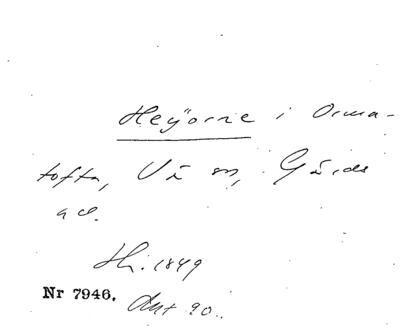 Heÿorne i Orma-
tofta, Vå sn, Gärds
hd.
Hi. 1849
Nr 7946. Ant 90.